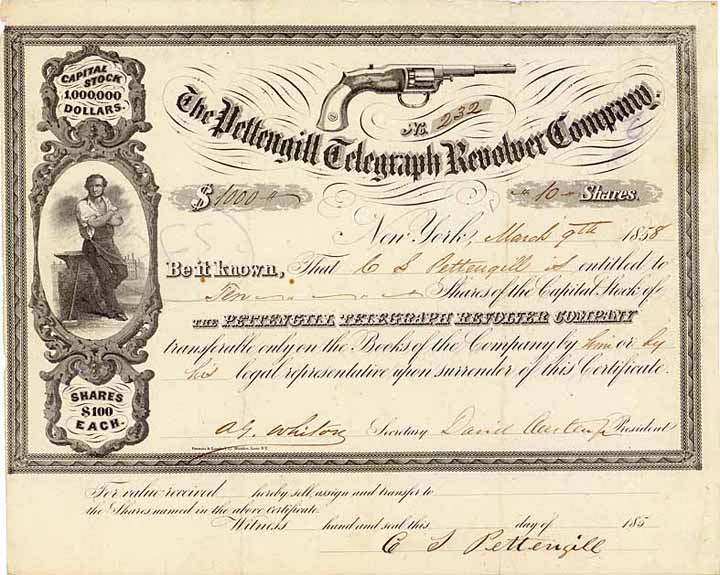 CAPITAL STOCK
1,000,000
DOLLARS.
No. 232
The Pettengill Telegraph Revolver Company.
$ 1000 10 Shares.
New York, March 9th 1858
Be it known, That C S Pettengill is entitled to
Ten Shares of the Capital Stock of
THE PETTENGILL TELEGRAPH REVOLVER COMPANY
transferable only on the Books of the Company by him or by
his legal representative upon surrender of this Certificate.
SHARES
$100
EACH.
Secretary David President
For value received hereby sell, assign and transfer to
the Shares named in the above certificate.
Witness hand and seal this day of 185
C S Pettengill